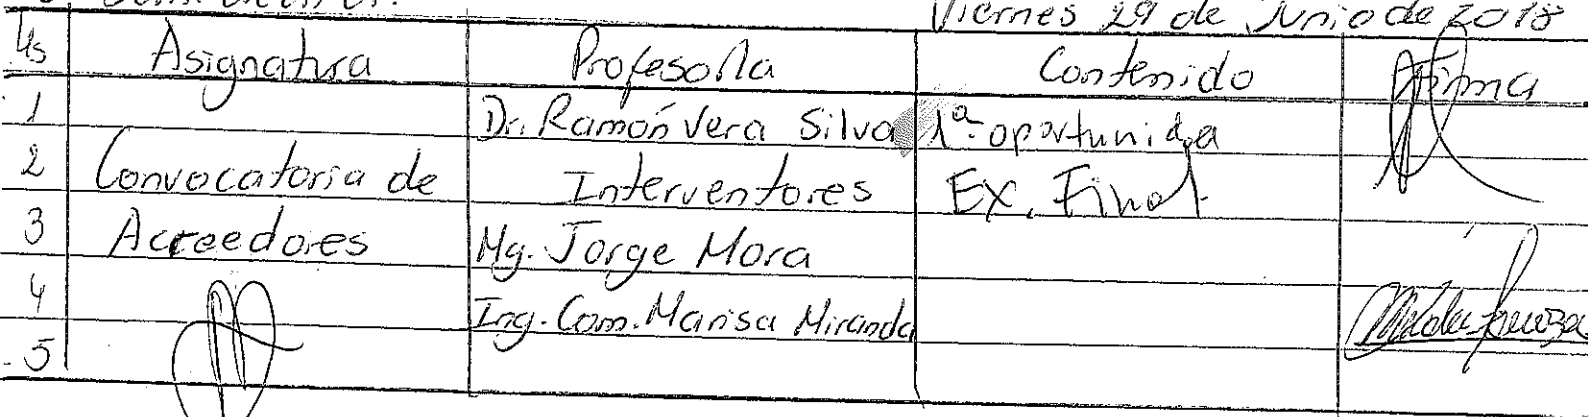 Viernes 29 de Junio de 2018
Hs Asignatura Profesor/a Contenido Firma
1 Dr. Ramón Vera Silva 1ª oportunida
2 Convocatoria de Interventores Ex. Final
3 Acreedores Mg. Jorge Mora
4 Ing. Com. Marisa Miranda
5